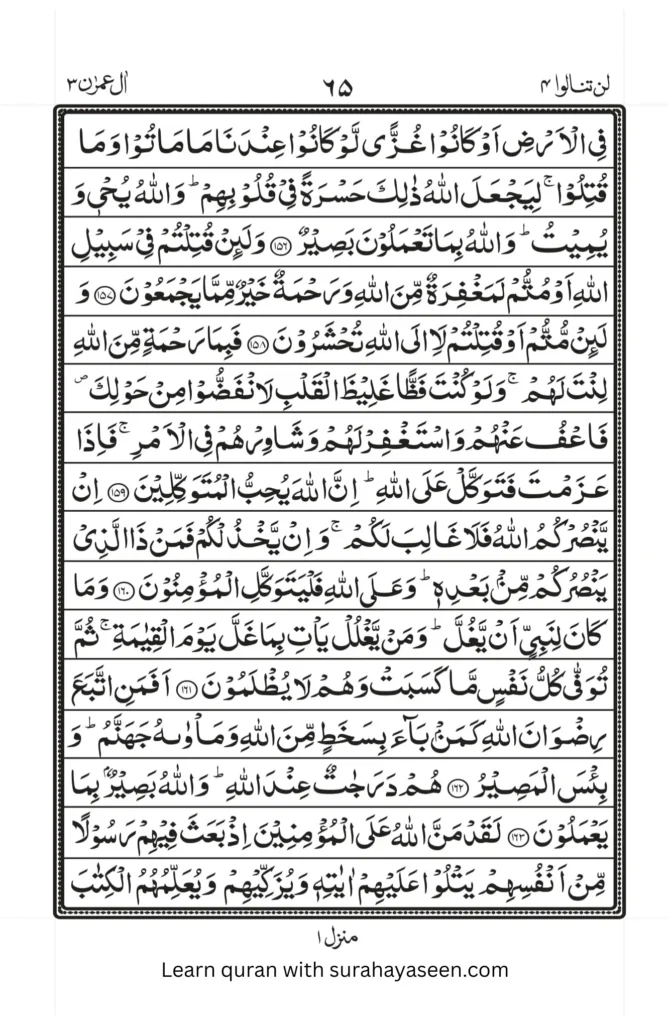 لن تنالوا ۴ ۶۵ اٰل عمرٰن ۳
فِى الْاَرْضِ اَوْ كَانُوْا غُزًّى لَّوْ كَانُوْا عِنْدَنَا مَا مَاتُوْا وَمَا
قُتِلُوْا ۚ لِيَجْعَلَ اللّٰهُ ذٰلِكَ حَسْرَةً فِىْ قُلُوْبِهِمْ ؕ وَاللّٰهُ يُحْىٖ وَ
يُمِيْتُ ؕ وَاللّٰهُ بِمَا تَعْمَلُوْنَ بَصِيْرٌ ۝۱۵۶ وَلَئِنْ قُتِلْتُمْ فِىْ سَبِيْلِ
اللّٰهِ اَوْ مُتُّمْ لَمَغْفِرَةٌ مِّنَ اللّٰهِ وَرَحْمَةٌ خَيْرٌ مِّمَّا يَجْمَعُوْنَ ۝۱۵۷ وَ
لَئِنْ مُّتُّمْ اَوْ قُتِلْتُمْ لَاِ۟الَى اللّٰهِ تُحْشَرُوْنَ ۝۱۵۸ فَبِمَا رَحْمَةٍ مِّنَ اللّٰهِ
لِنْتَ لَهُمْ ۚ وَلَوْ كُنْتَ فَظًّا غَلِيْظَ الْقَلْبِ لَانْفَضُّوْا مِنْ حَوْلِكَ ۖ
فَاعْفُ عَنْهُمْ وَاسْتَغْفِرْ لَهُمْ وَشَاوِرْهُمْ فِى الْاَمْرِ ۚ فَاِذَا
عَزَمْتَ فَتَوَكَّلْ عَلَى اللّٰهِ ؕ اِنَّ اللّٰهَ يُحِبُّ الْمُتَوَكِّلِيْنَ ۝۱۵۹ اِنْ
يَّنْصُرْكُمُ اللّٰهُ فَلَا غَالِبَ لَكُمْ ۚ وَاِنْ يَّخْذُلْكُمْ فَمَنْ ذَا الَّذِىْ
يَنْصُرُكُمْ مِّنْۢ بَعْدِهٖ ؕ وَعَلَى اللّٰهِ فَلْيَتَوَكَّلِ الْمُؤْمِنُوْنَ ۝۱۶۰ وَمَا
كَانَ لِنَبِىٍّ اَنْ يَّغُلَّ ؕ وَمَنْ يَّغْلُلْ يَاْتِ بِمَا غَلَّ يَوْمَ الْقِيٰمَةِ ۚ ثُمَّ
تُوَفّٰى كُلُّ نَفْسٍ مَّا كَسَبَتْ وَهُمْ لَا يُظْلَمُوْنَ ۝۱۶۱ اَفَمَنِ اتَّبَعَ
رِضْوَانَ اللّٰهِ كَمَنْۢ بَآءَ بِسَخَطٍ مِّنَ اللّٰهِ وَمَاْوٰىهُ جَهَنَّمُ ؕ وَ
بِئْسَ الْمَصِيْرُ ۝۱۶۲ هُمْ دَرَجٰتٌ عِنْدَ اللّٰهِ ؕ وَاللّٰهُ بَصِيْرٌۢ بِمَا
يَعْمَلُوْنَ ۝۱۶۳ لَقَدْ مَنَّ اللّٰهُ عَلَى الْمُؤْمِنِيْنَ اِذْ بَعَثَ فِيْهِمْ رَسُوْلًا
مِّنْ اَنْفُسِهِمْ يَتْلُوْا عَلَيْهِمْ اٰيٰتِهٖ وَيُزَكِّيْهِمْ وَيُعَلِّمُهُمُ الْكِتٰبَ
منزل ۱
Learn quran with surahayaseen.com